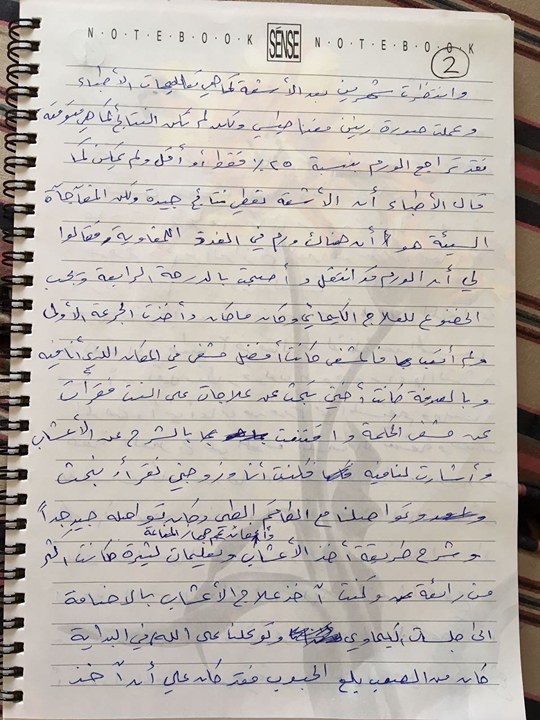 N·O·T·E·B·O·O·K SÉNSE N·O·T·E·B·O·O·K
2
وانتظرت شهرين بعد الأشعة كما هي تعليمات الأطباء
وعملت صورة رنين مغناطيسي ولكن لم تكن النتائج كما هي متوقعة
فقد تراجع الورم بنسبة ٢٥٪ فقط أو أقل ولم يكن كما
قال الأطباء أن الأشعة تعطي نتائج جيدة ولكن المفآجآة
السيئة هو أن هناك ورم في الغدد اللمفاوية فقالوا
لي أن الورم قد انتقل وأصبحت بالدرجة الرابعة ويجب
الخضوع للعلاج الكيمائي وكان ماكان وأخذت الجرعة الأولى
ولم أتعب فالمشفى كانت أفضل مشفى في المكان الذي أنا فيه
وبالصدفة كانت أختي تبحث عن علاجات على النت فقرأت
عن مشفى الحكمة واقتنعت بالشرح عن الأعشاب
وأشارت لنا فيه فكنت أنا وزوجتي نقرأ ونبحث
وتواصلنا مع الطاقم الطبي وكان تواصله جيد جداً
وأخصائي جهاز المناعة
وشرح طريقة أخذ الأعشاب وتعليمات كثيرة كانت أكثر
من رائعة وكنت آخذ علاج الأعشاب بالاضافة
الى جلسات الكيماوي وتوكلنا على الله في البداية
كان من الصعب بلع الحبوب فقد كان علي أن آخذ